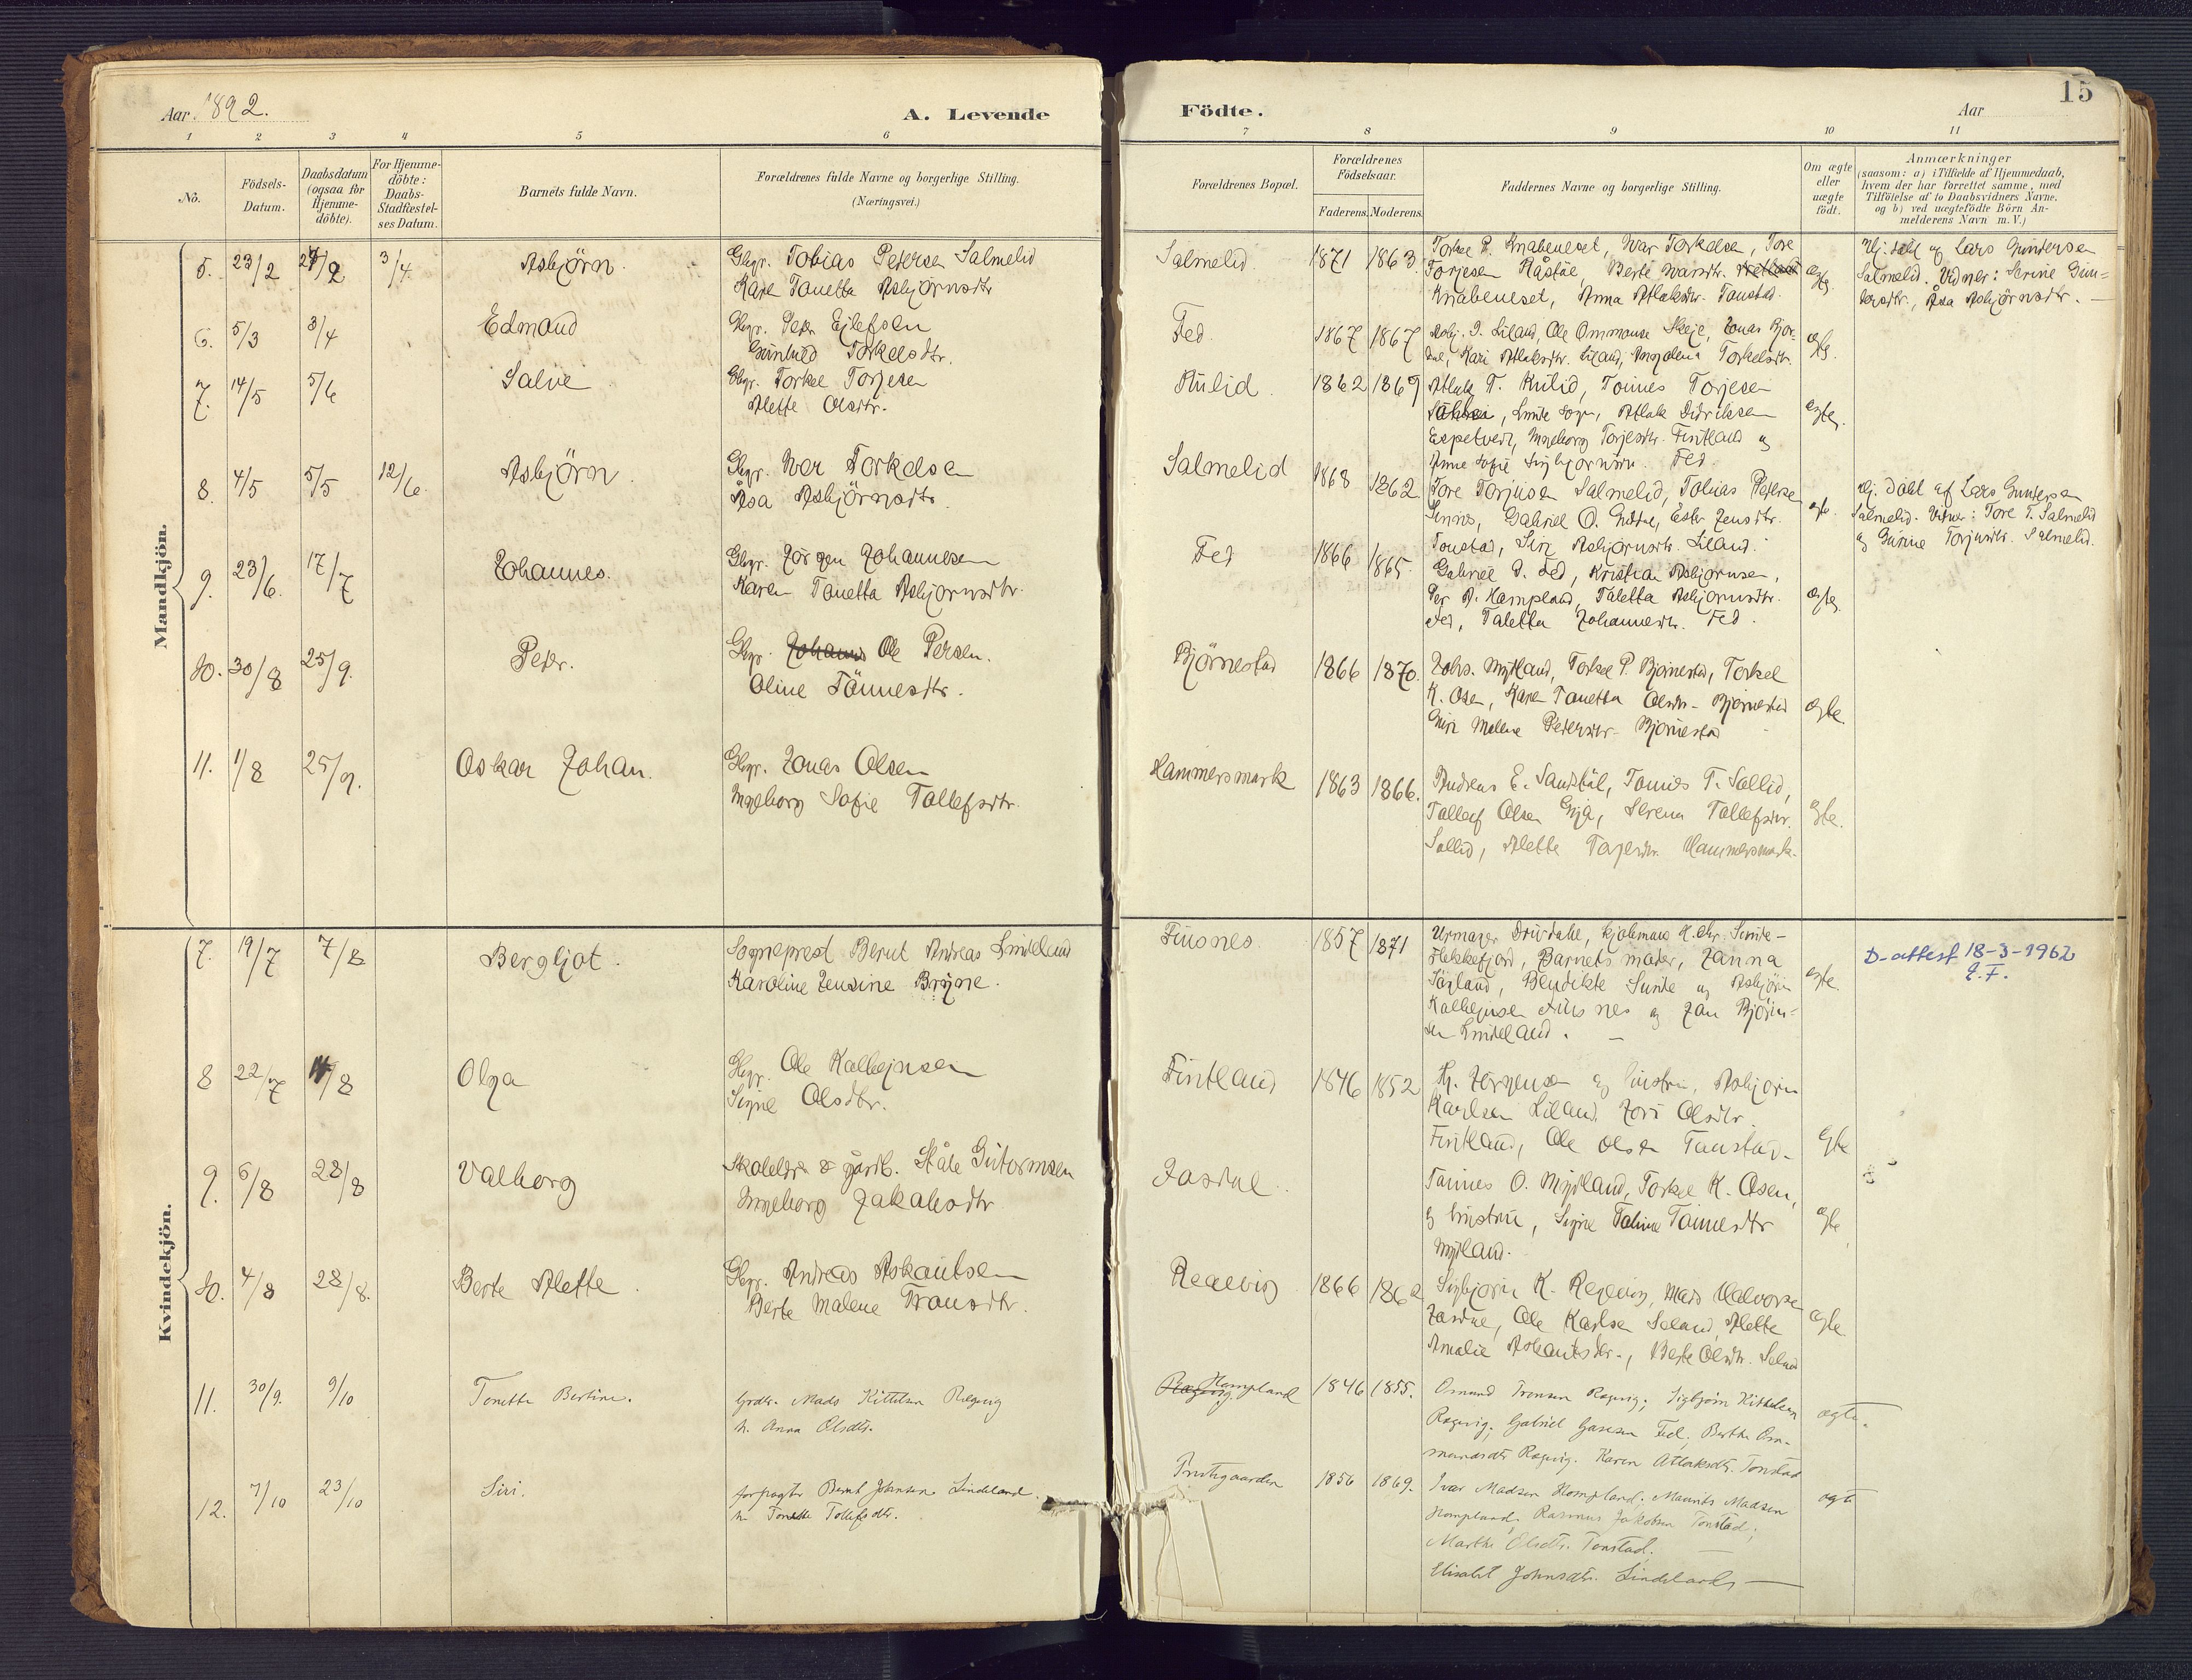 15
Aar 1892.
A. Levende
Födte.
Aar
1 2 3 4 5 6 7 8 9 10 11
No.
Födsels-Datum.
Daabsdatum (ogsaa for Hjemme-döbte).
For Hjemme-döbte: Daabs-Stadfæstel-ses Datum.
Barnets fulde Navn.
Forældrenes fulde Navne og borgerlige Stilling.
(Næringsvei.)
Forældrenes Bopæl.
Forældrenes Födselsaar.
Faderens. Moderens.
Faddernes Navne og borgerlige Stilling.
Om ægte eller uægte födt.
Anmærkninger
(saasom: a) i Tilfælde af Hjemmedaab,
hvem der har forrettet samme, med
Tilföielse af to Daabsvidners Navne.
og b) ved uægtefödte Börn An-
melderens Navn m. V.)
Mandkjön.
5. 23/2 3/4 Asbjörn Gbgr. Tobias Petersen Salmelid
Karen Tanetta Asbjörnsdtr
Salmelid 1871 1863. Torkel P. Knabeneset, Ivar Torkelsen, Tore
Torjesen Råstöe, Berte Ivarsdtr.
Knabeneset, Anna Atlaksdtr. Tonstad
Hj. døbt af Lars Gundersen
Salmelid. Vidner: Serine Gun-
dersdtr., Åsa Asbjörnsdtr.
6. 5/3 3/4 Edmand Gbgr. Peder Eilefsen
Gunhild Torkelsdtr.
Fed 1867 1867 Asbj. Liland, Ole Ommonse Skeje, Jonas
Kari Atlaksdtr. Liland, Magdalena Torkelsdtr.
7. 14/5 5/6 Salve Gbgr. Torkel Torjesen
Alette Olsdtr.
Kulid 1862 1869 Atlak T. Kulid, Tönnes Torjesen
Lunde Sogn, Atlak Didriksen
Espetveit, Ingeborg Torjesdtr. Fintland og
Anne Sofie Sigbjørnsdtr. Fed
ægte
8. 4/5 5/5 12/6 Asbjörn Gbgr. Iver Torkelsen
Åsa Asbjörnsdtr.
Salmelid 1868 1862 Tore Torjusen Salmelid, Tobias Peterse
Sinnes, Gabriel O. Ester Jensdtr.
Tonstad, Siri Asbjörnsdtr. Liland.
Hj. døbt af Lars Gundersen
Salmelid. Vidner: Tore T. Salmelid
og Gurine Torjusdtr. Salmelid.
9. 23/6. 17/7 Johannes. Gbgr. Jörgen Johannesen
Karen Tanetta Asbjornsdtr.
Fed 1866 1865. Gabriel Fed, Kristian Asbjornsen,
Per A. Hampland, Taletta Asbjornsdtr.
Fed, Taletta Johannesdtr. Fed.
ægte
10. 30/8 25/9. Peder. Gbgr. Johannes Ole Persen.
Oline Tönnesdtr.
Björnestad 1866 1870. Johs. Mydland, Torkel P. Bjørnestad, Torkel
K. Osen, Karen Tanetta Olsdtr. Bjørnestad
Siri Malene Pedersdtr. Bjørnestad
ægte.
11. 1/8 25/9. Oskar Johan. Gbgr. Jonas Olsen
Ingeborg Sofie Tollefsdtr.
Hammersmark 1863 1866. Andreas E. Sandstøl, Tønnes T. Sollid,
Tallef Olsen Serena Tallefsdtr.
Sollid, Alette Hammersmark.
ægte.
Kvindekjön.
7. 19/7 7/8 Bergljot. Sogneprest Bernt Andreas Lindeland
Karoline Jensine Bryne.
Fuisnes 1857 1871 Urmager Drivdahl, kjøbmand H. Chr. Sunde
Flekkefjord, Barnets moder, Janna
Sörland, Bendikte Sunde og Asbjörn
Kallejusen og Jan Björn-
sen Lindeland.
ægte.
D-attest 18-3-1962
8 22/7 14/8 Olga Gbgr. Ole Kallejusen
Signe Olsdtr.
Fintland 1846 1852 Jörgensen og hustru, Asbjorn
Karlsen Liland, Jori Olsdtr.
Fintland, Ole Olsen Tonstad
ægte
9. 6/8 28/8 Valborg Skolelær. & gårdb. Ståle Gutormsen
Ingeborg Jakobsdtr
Josdal Tönnes O. Mydland, Torkel K. Osen,
og hustru, Signe Taline Tönnesdtr
Mydland.
ægte
10. 4/8 28/8. Berte Alette Gbgr. Andreas Askautsen
Berte Malene Tronsdtr.
Regevig 1866 1862 Sigbjorn K. Regevig, Mads Halvorse
Josdal, Ole Karlsen Seland, Alette
Amalie Berte Olsdtr. Seland
ægte
11. 30/9. 9/10 Tonette Bertine. Grdbr. Mads Kittelsen Regevig
h. Anna Olsdtr.
Hompland 1846 1855. Omund Tronsen Regevig; Sigbjörn Kittelsen
Regevig; Gabriel Fed; Berthe Om-
mundsdtr Regevig. Karen Atlaksdtr. Tonstad
ægte.
12. 7/10 23/10 Siri. forpagter Bernt Johnsen Lindeland
h. Tonette Tollefsdtr.
Prestegaarden 1856 1869. Ivar Madsen Hompland; Maurits Madsen
Hompland; Rasmus Jakobsen Tonstad;
Marthe Olsdtr. Tonstad.
Elisabet Johnsdtr. Lindeland
ægte